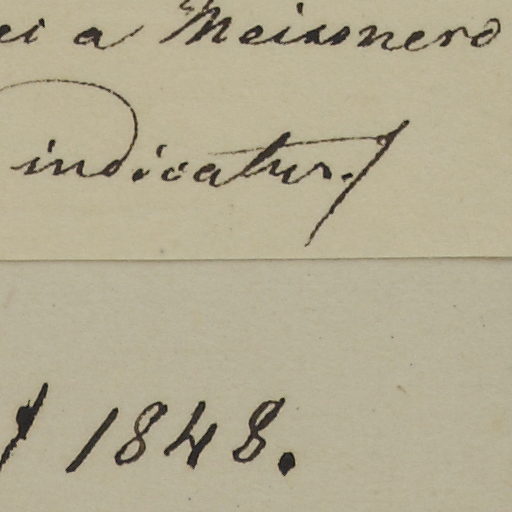 ei a Meissnero
indicatur.)
) 1848.